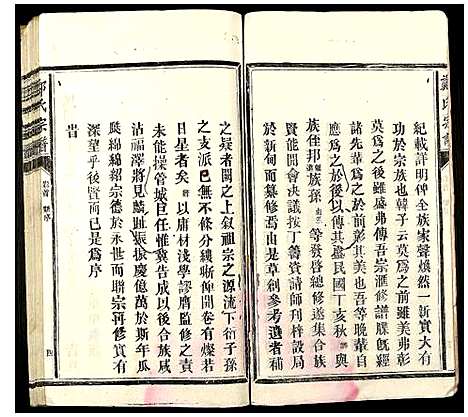 紀載詳明俾全族家聲煥然一新實大有
功於宗族也韓子云莫為之前雖美弗彰
莫為之後雖盛弗傳吾宗滙修譜牒旣經
諸先華為之於前以彰其美也吾等晚輩自
應為之於後以傳其盛民國丁亥秋 與
族侄邦 族孫 等發啓總修遂集合族
賢能開會決按丁籌資請師刊梓設局
於新甸而纂修焉由是草創參考遺者補
之疑者闕之上叙祖宗之源流下衍子孫
之支派已無不條分縷晰俾開卷有燦若
日星者矣 以庸材淺學謬膺監修之責
未能操管城巨任惟冀告成以後合族咸
沾福澤將見麟趾振振慶億萬於斯年瓜
瓞綿綿紹宗德於永世而聯宗再修實有
深望乎後賢而已是為序
旹
鄭氏宗譜
卷首 序
四
鄭氏宗譜